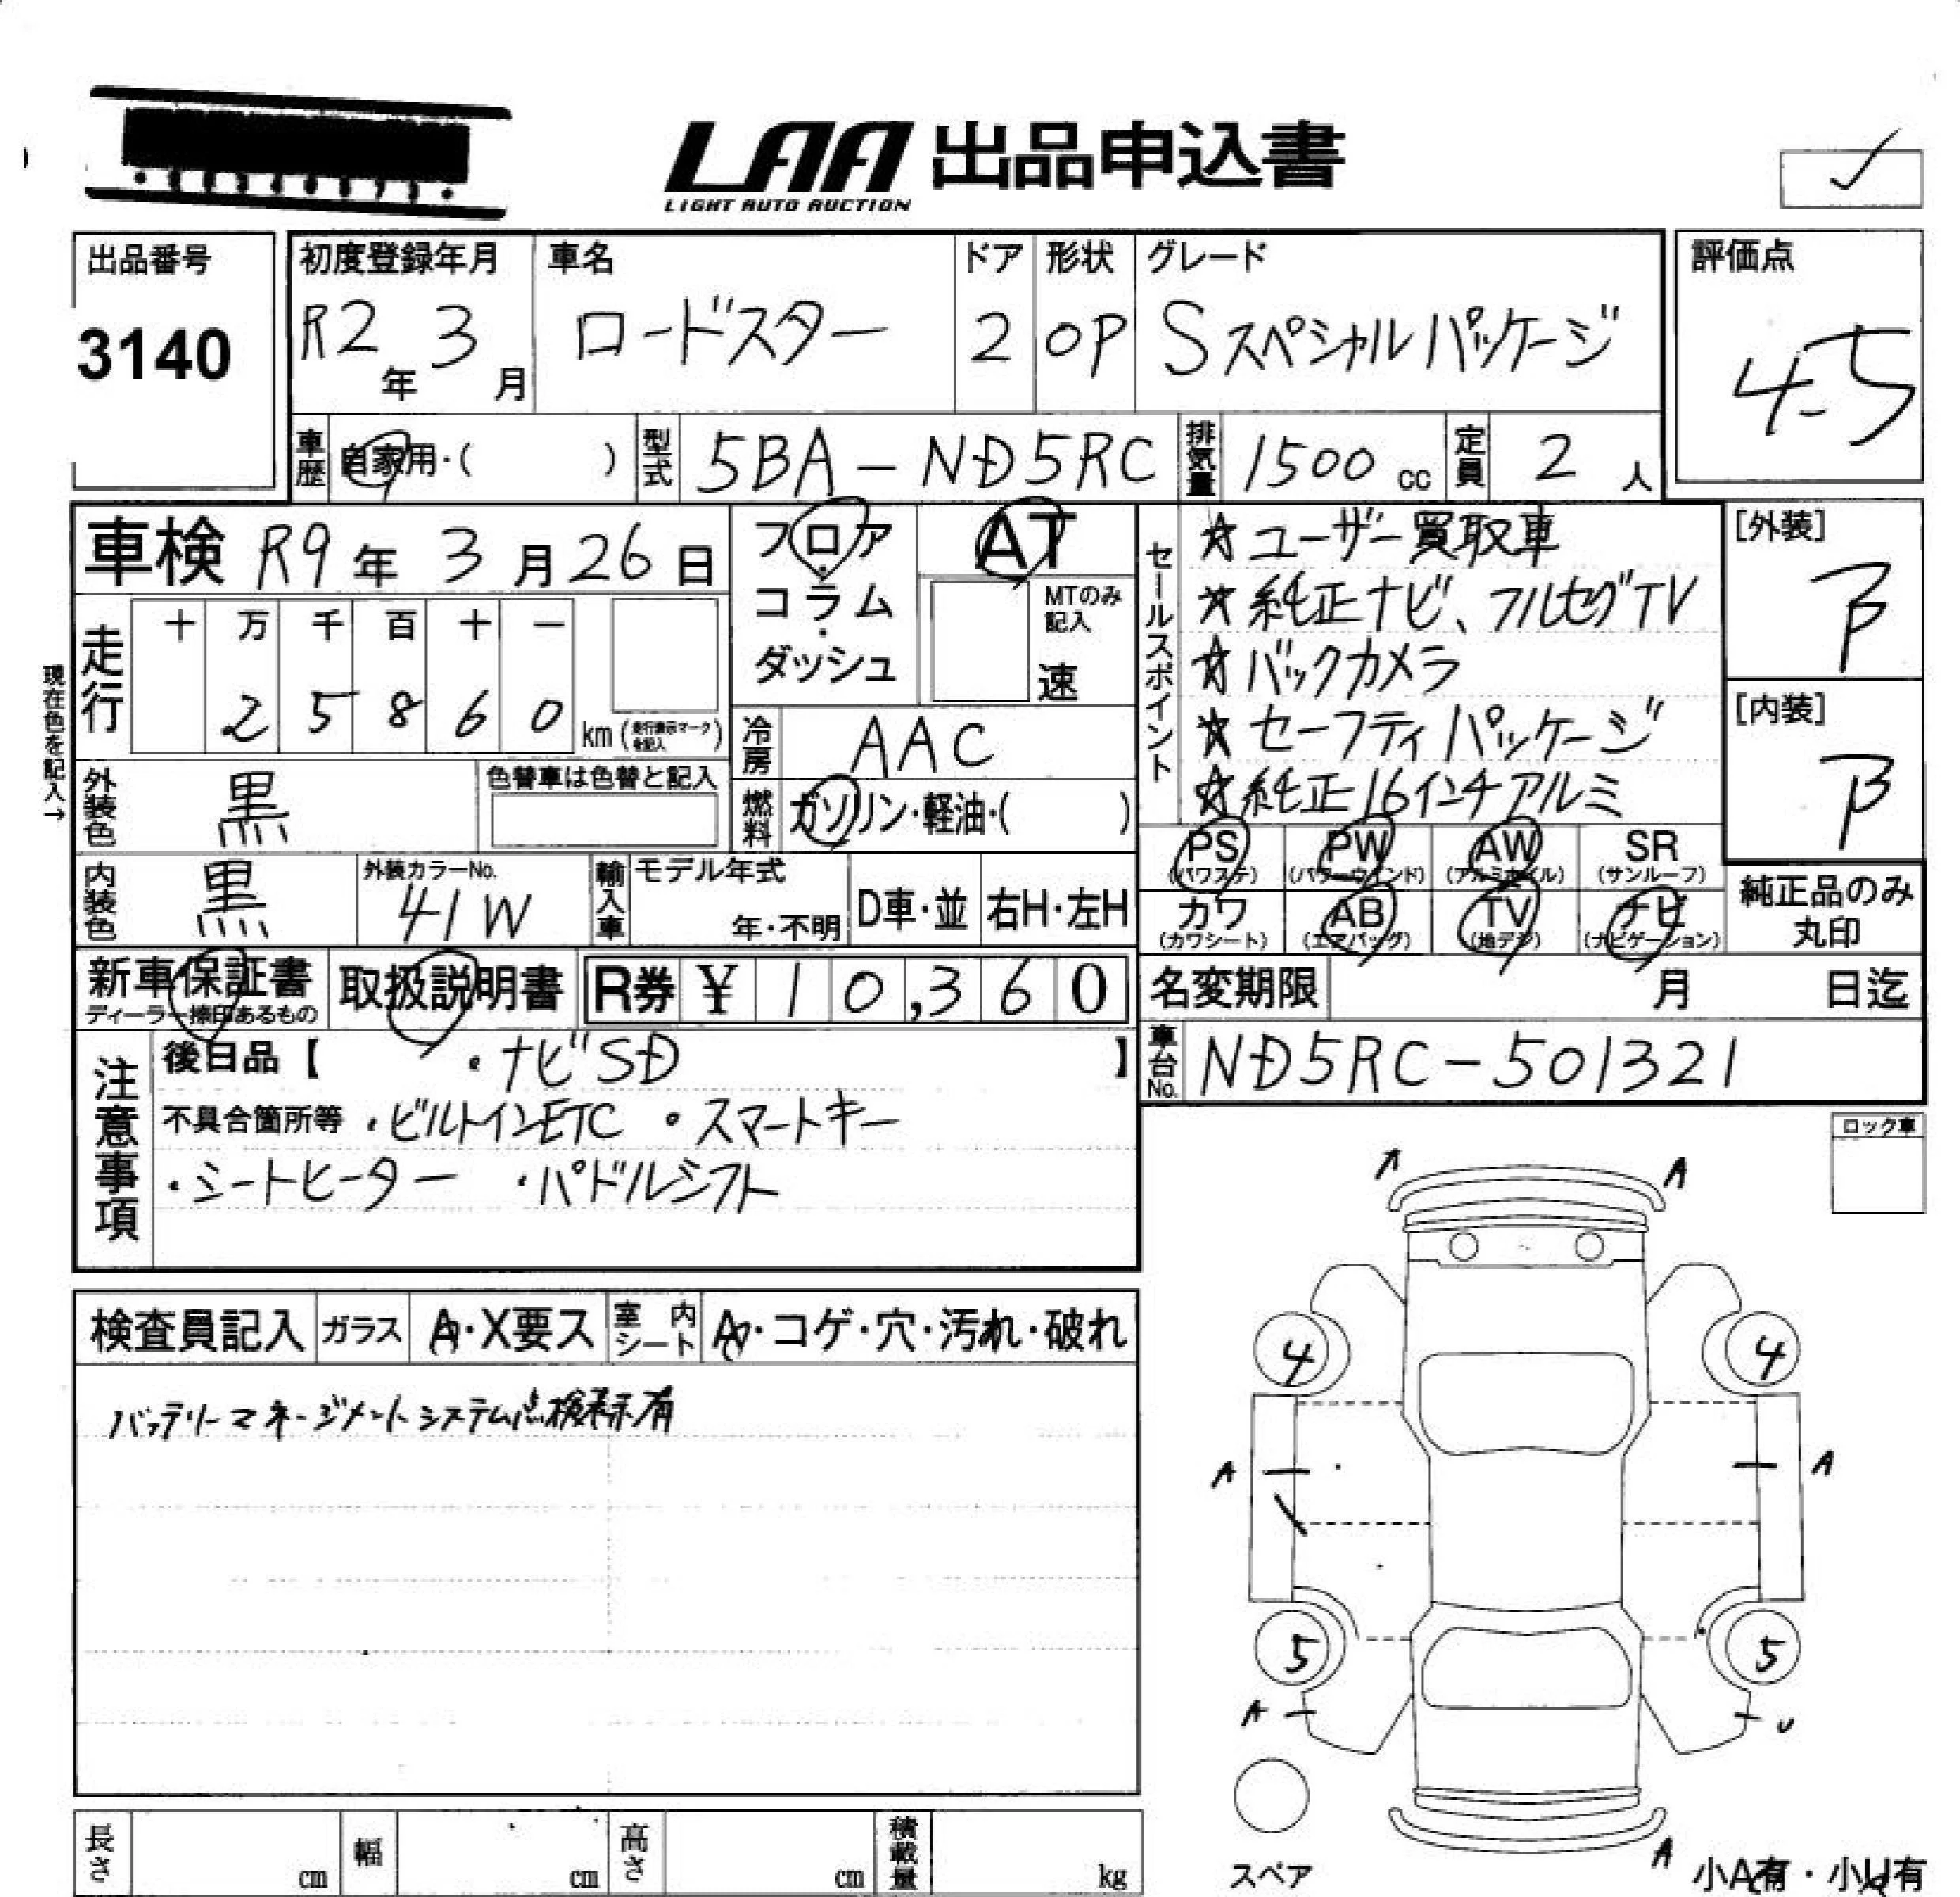 LAA 出品申込書
LIGHT AUTO AUCTION
出品番号
3140
初度登録年月
R2年 3月
車名
ロードスター
ドア
2
形状
OP
グレード
Sスペシャルパッケージ
評価点
4.5
車歴 自家用・( )
型式 5BA-ND5RC
排気量 1500 cc
定員 2 人
車検 R9年 3月 26日
フロア・コラム・ダッシュ
AT
MTのみ記入
速
セールスポイント
☆ユーザー買取車
☆純正ナビ、フルセグTV
☆バックカメラ
☆セーフティパッケージ
☆純正16インチアルミ
[外装]
B
[内装]
B
現在色を記入→
走行 十 万 千 百 十 一
2 5 8 6 0 km (走行表示マークを記入)
冷房 AAC
外装色 黒
色替車は色替と記入
燃料 ガソリン・軽油・( )
内装色 黒
外装カラーNo.
41W
輸入車 モデル年式
年・不明
D車・並 右H・左H
PS (パワステ) PW (パワーウインド) AW (アルミホイル) SR (サンルーフ)
カワ (カワシート) AB (エアバッグ) TV (地デジ) ナビ (ナビゲーション)
純正品のみ丸印
新車保証書
ディーラー捺印あるもの
取扱説明書
R券 ¥ 10,360
名変期限 月 日迄
車台No. ND5RC-501321
注意事項
後日品【 ・ナビSD 】
不具合箇所等 ・ビルトインETC ・スマートキー
・シートヒーター ・パドルシフト
ロック車
検査員記入 ガラス A・X要ス 室内シート A・コゲ・穴・汚れ・破れ
バッテリーマネージメントシステム点検表示有
A A
4 4
A A
5 5
A U
A
スペア
小A有・小U有
長さ cm 幅 cm 高さ cm 積載量 kg